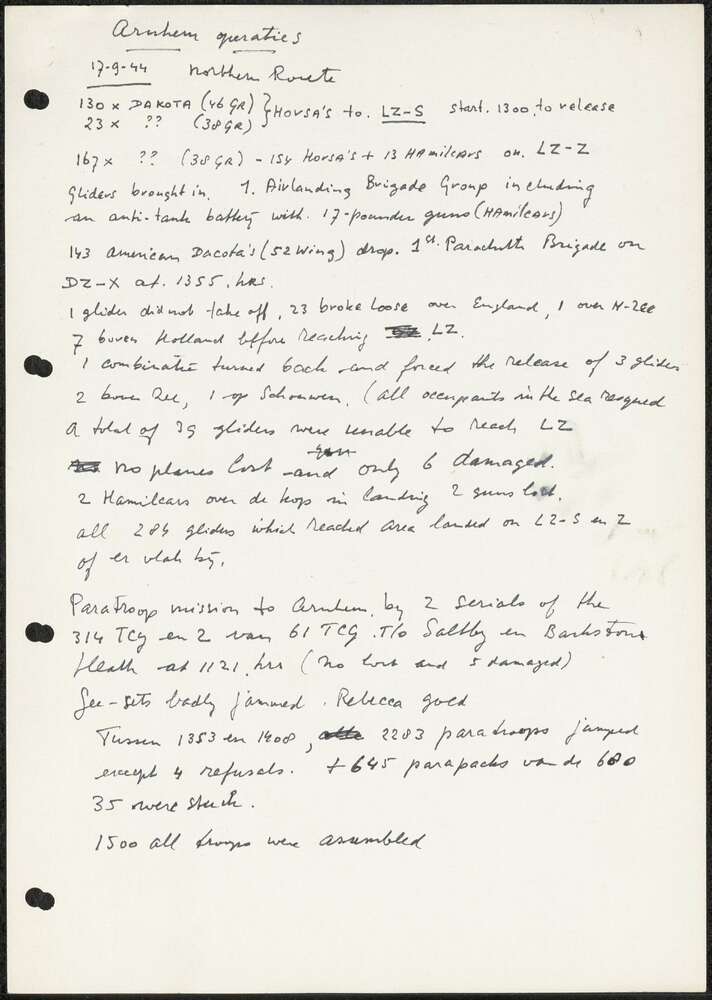 Arnhem operaties
17-9-44 Northern Route
130 x DAKOTA (46 GR) } HORSA'S to. LZ-S start. 1300 to release
23 x ?? (38 GR)
167 x ?? (38 GR) - 154 Horsa's + 13 HAmilcars on. LZ-Z
Gliders brought in. 1. Airlanding Brigade Group including
an anti-tank battery with. 17-pounder guns (HAmilcars)
143 american Dacota's (52 Wing) drop. 1st. Parachute Brigade on
DZ-X at. 1355. hrs.
1 glider did not take off, 23 broke loose over England, 1 over N-Zee
7 boven Holland before reaching LZ.
1 combinatie turned back and forced the release of 3 gliders
2 boven Zee, 1 op Schouwen. (all occupants in the sea resqued
A total of 39 gliders were unable to reach LZ
no planes lost and only 6 damaged.
2 Hamilcars over de kop in landing 2 guns lost.
all 284 gliders which reached area landed on LZ-S en Z
of er vlak bij.
Paratroop mission to Arnhem. by 2 serials of the
314 TCG en 2 van 61 TCG. T/o Saltby en Barkston
Heath at 1121. hrs (no lost and 5 damaged)
Gee-sets badly jammed. Rebecca goed
Tussen 1353 en 1408, 2283 paratroops jumped
except 4 refusals. + 645 parapacks van de 680
35 were stuck.
1500 all troops were assembled